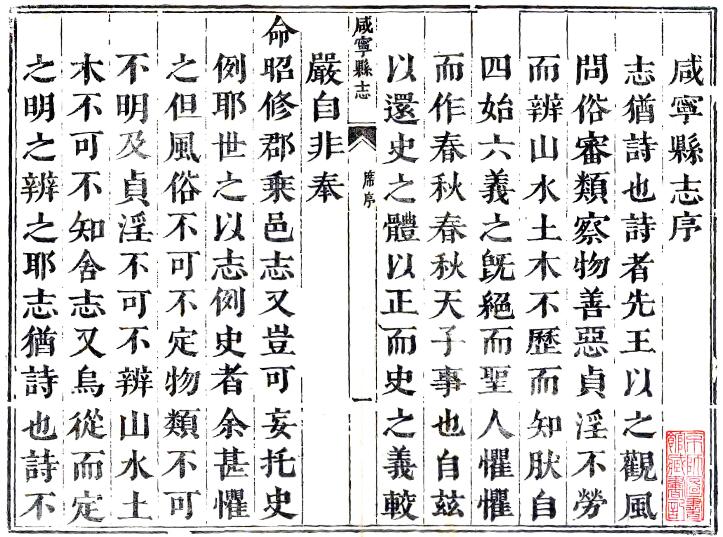 咸寧縣志序
志猶詩也詩者先王以之觀風
問俗審類察物善惡貞淫不勞
而辨山水土木不歷而知肰自
四始六義之旣絕而聖人懼懼
而作春秋春秋天子事也自茲
以還史之體以正而史之義較
咸寧縣志
席序
一
嚴自非奉
命昭修郡乗邑志又豈可妄托史
例耶世之以志例史者余甚懼
之但風俗不可不定物類不可
不明及貞淫不可不辨山水土
木不可不知舍志又烏從而定
之明之辨之耶志猶詩也詩不